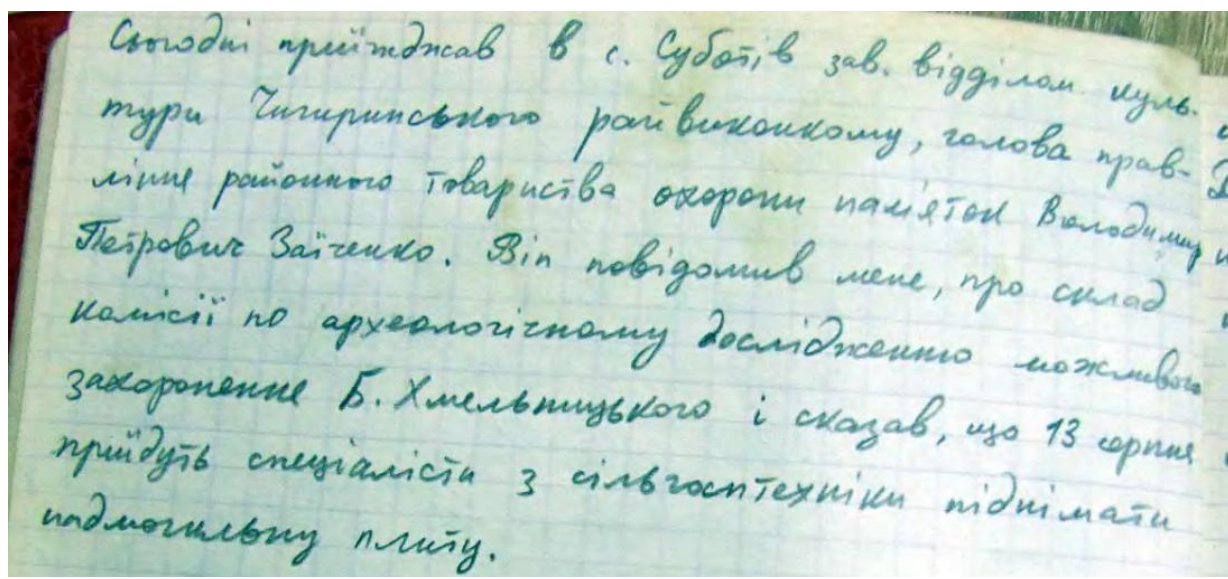 Сьогодні приїжджав в с. Суботів зав. відділом куль-
тури Чигиринського райвиконкому, голова прав-
ління районного товариства охорони пам'яток Володимир
Петрович Заїченко. Він повідомив мене, про склад
комісії по археологічному дослідженню можливого
захоронення Б. Хмельницького і сказав, що 13 серпня
прийдуть спеціалісти з сільгосптехніки піднімати
надмогильну плиту.